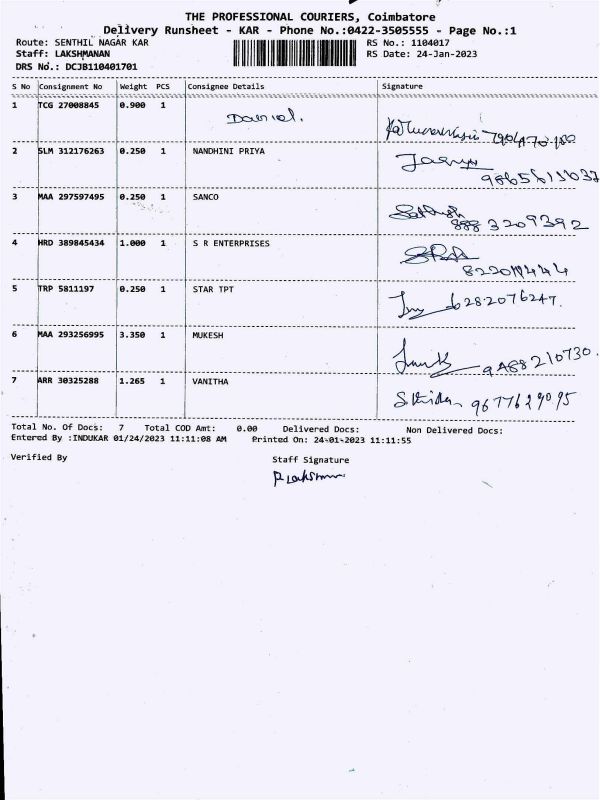 THE PROFESSIONAL COURIERS, Coimbatore
Delivery Runsheet - KAR - Phone No.:0422-3505555 - Page No.:1
Route: SENTHIL NAGAR KAR RS No.: 1104017
Staff: LAKSHMANAN RS Date: 24-Jan-2023
DRS No.: DCJB110401701
S No Consignment No Weight PCS Consignee Details Signature
1 TCG 27008845 0.900 1 Daniel.
2 SLM 312176263 0.250 1 NANDHINI PRIYA
3 MAA 297597495 0.250 1 SANCO Sathish 888 3209392
4 HRD 389845434 1.000 1 S R ENTERPRISES
5 TRP 5811197 0.250 1 STAR TPT 6282076247.
6 MAA 293256995 3.350 1 MUKESH
7 ARR 30325288 1.265 1 VANITHA 9677629095
Total No. Of Docs: 7 Total COD Amt: 0.00 Delivered Docs: Non Delivered Docs:
Entered By :INDUKAR 01/24/2023 11:11:08 AM Printed On: 24-01-2023 11:11:55
Verified By Staff Signature